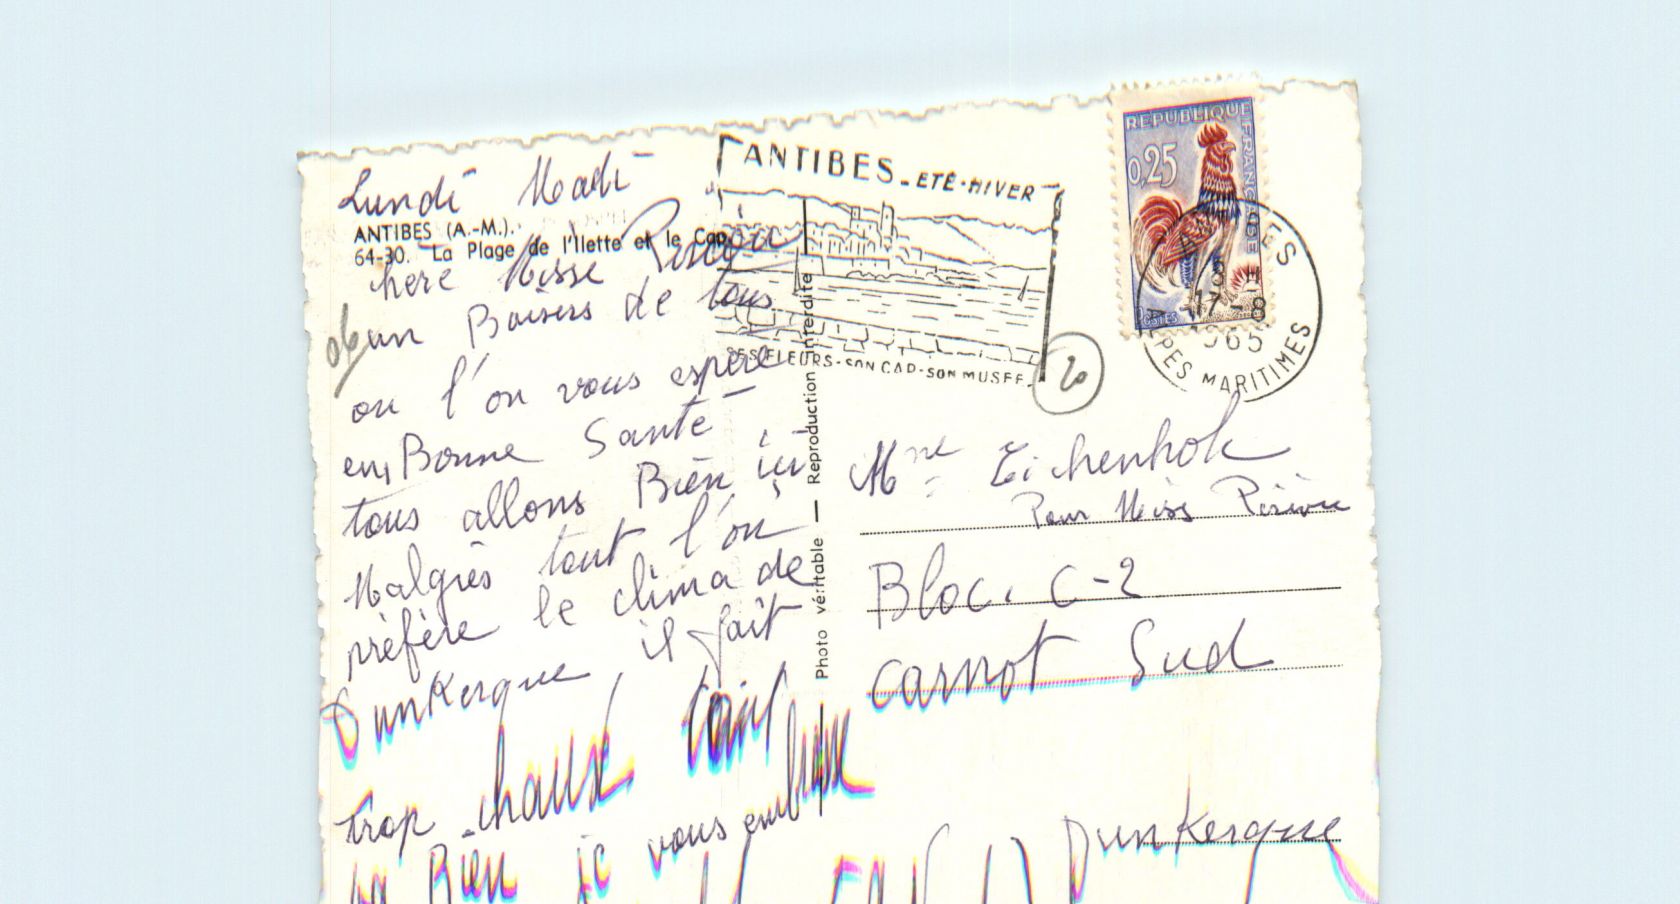 Lundi Madi
ANTIBES (A.-M.).
64-30. La Plage de l'Ilette et le Cap
here Misse
un Baisers de tous
ou l'on vous espère
en Bonne Santé
tous allons Bien ici
Malgrès tout l'on
préfère le clima de
Dunkerque il fait
trop chaux tout
va Bien je vous
Photo véritable — Reproduction interdite
ANTIBES - ÉTÉ-HIVER
SES FLEURS-SON CAP-SON MUSEE
20
REPUBLIQUE FRANCAISE
0,25
POSTES
17
8
1965
ALPES MARITIMES
Mme Eichenhok
Pour Miss
Bloc. C-2
Carnot Sud
Dunkerque